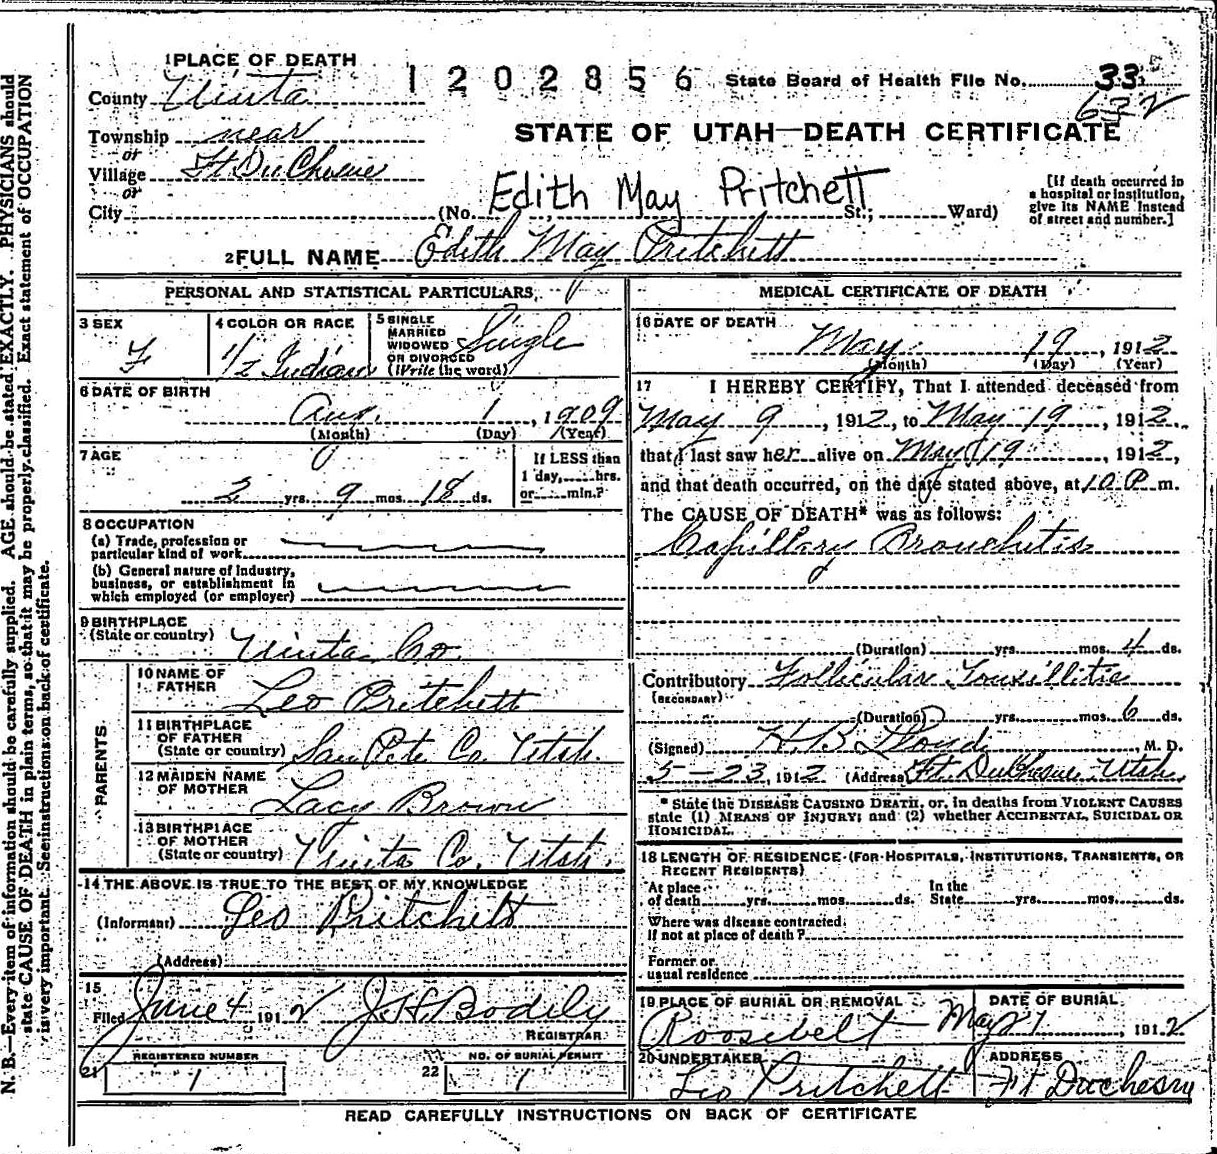 1 PLACE OF DEATH
1202856 State Board of Health File No. 33
632
County Uinta
Township near
or
Village Ft DuChesne
or
City
STATE OF UTAH—DEATH CERTIFICATE
Edith May Pritchett
(No. St.; Ward)
[If death occurred in
a hospital or institution,
give its NAME instead
of street and number.]
2 FULL NAME Edith May Pritchett
PERSONAL AND STATISTICAL PARTICULARS
3 SEX
F
4 COLOR OR RACE
1/2 Indian
5 SINGLE
MARRIED
WIDOWED
OR DIVORCED
(Write the word)
Single
6 DATE OF BIRTH
Aug. 1, 1909
(Month) (Day) (Year)
7 AGE
2 yrs. 9 mos. 18 ds.
If LESS than
1 day, hrs.
or min.?
8 OCCUPATION
(a) Trade, profession or
particular kind of work
(b) General nature of Industry,
business, or establishment in
which employed (or employer)
9 BIRTHPLACE
(State or country) Uinta Co.
PARENTS
10 NAME OF
FATHER
Leo Pritchett
11 BIRTHPLACE
OF FATHER
(State or country) San Pete Co. Utah.
12 MAIDEN NAME
OF MOTHER
Lacy Brown
13 BIRTHPLACE
OF MOTHER
(State or country) Uinta Co. Utah.
14 THE ABOVE IS TRUE TO THE BEST OF MY KNOWLEDGE
(Informant) Leo Pritchett
(Address)
15
Filed June 4 1912 J.H. Bodily
REGISTRAR
21 REGISTERED NUMBER
1
22 NO. OF BURIAL PERMIT
1
MEDICAL CERTIFICATE OF DEATH
16 DATE OF DEATH
May 19, 1912
(Month) (Day) (Year)
17 I HEREBY CERTIFY, That I attended deceased from
May 9, 1912, to May 19, 1912.
that I last saw her alive on May 19, 1912,
and that death occurred, on the date stated above, at 10 P. m.
The CAUSE OF DEATH* was as follows:
Capillary Bronchitis
(Duration) yrs. mos. 4 ds.
Contributory Follicular Tonsillitis
(SECONDARY)
(Duration) yrs. mos. 6 ds.
(Signed) H.B. Lloyd, M. D.
5-23, 1912 (Address) Ft DuChesne Utah
* State the DISEASE CAUSING DEATH, or, in deaths from VIOLENT CAUSES
state (1) MEANS OF INJURY; and (2) whether ACCIDENTAL, SUICIDAL OR
HOMICIDAL.
18 LENGTH OF RESIDENCE (FOR HOSPITALS, INSTITUTIONS, TRANSIENTS, OR
RECENT RESIDENTS)
At place
of death yrs. mos. ds.
In the
State yrs. mos. ds.
Where was disease contracted
If not at place of death?
Former or
usual residence
19 PLACE OF BURIAL OR REMOVAL
Roosevelt
DATE OF BURIAL
May 21, 1912
20 UNDERTAKER
Leo Pritchett
ADDRESS
Ft Duchesne
READ CAREFULLY INSTRUCTIONS ON BACK OF CERTIFICATE
N. B.—Every item of information should be carefully supplied. AGE should be stated EXACTLY. PHYSICIANS should
state CAUSE OF DEATH in plain terms, so that it may be properly classified. Exact statement of OCCUPATION
is very important. See instructions on back of certificate.